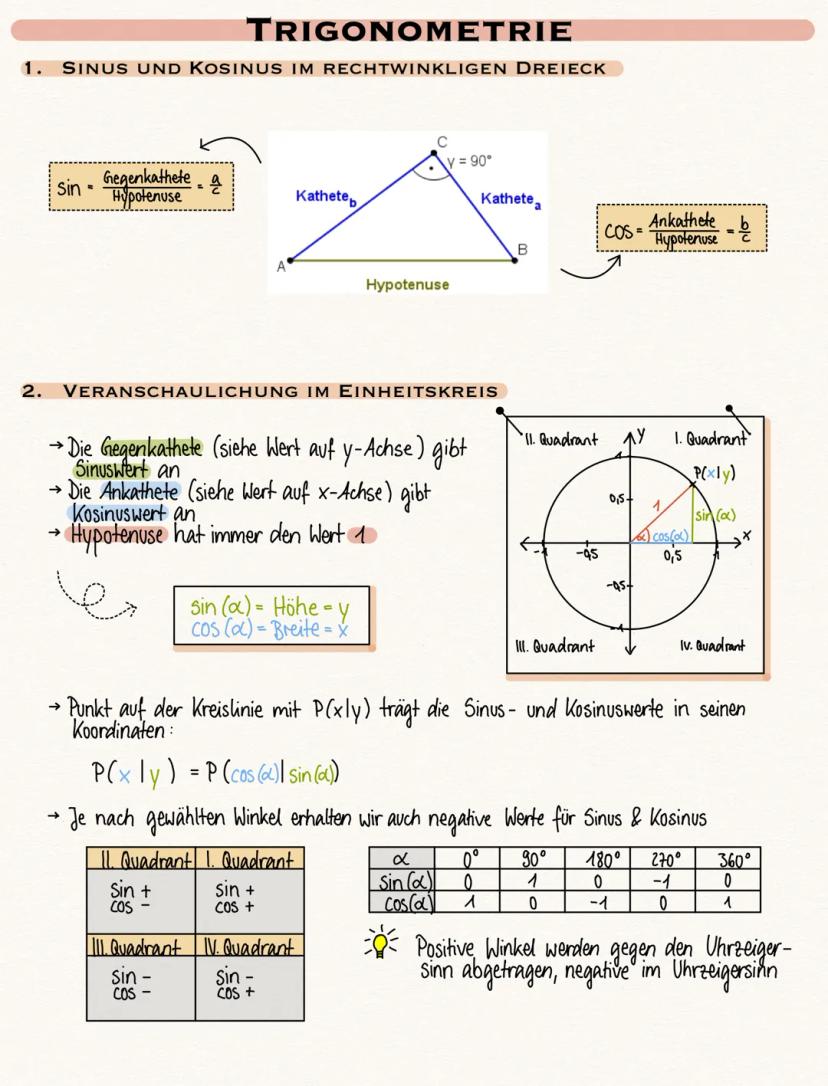 TRIGONOMETRIE
1. SINUS UND KOSINUS IM RECHTWINKLIGEN DREIECK
sin = Gegenkathete / Hypotenuse = a/c
C
γ = 90°
Kathete b
Kathete a
A
B
Hypotenuse
cos = Ankathete / Hypotenuse = b/c
2. VERANSCHAULICHUNG IM EINHEITSKREIS
→ Die Gegenkathete (siehe Wert auf y-Achse) gibt
Sinuswert an
→ Die Ankathete (siehe Wert auf x-Achse) gibt
Kosinuswert an
→ Hypotenuse hat immer den Wert 1
sin (α) = Höhe = y
cos (α) = Breite = x
II. Quadrant
y
I. Quadrant
1
P(x|y)
0,5
1
sin(α)
α
cos(α)
x
-1
-0,5
0,5
1
-0,5
-1
III. Quadrant
IV. Quadrant
→ Punkt auf der Kreislinie mit P(x|y) trägt die Sinus- und Kosinuswerte in seinen
Koordinaten:
P(x|y) = P(cos(α)|sin(α))
→ Je nach gewählten Winkel erhalten wir auch negative Werte für Sinus & Kosinus
II. Quadrant I. Quadrant
sin + sin +
cos - cos +
III. Quadrant IV. Quadrant
sin - sin -
cos - cos +
α 0° 90° 180° 270° 360°
sin(α) 0 1 0 -1 0
cos(α) 1 0 -1 0 1
Positive Winkel werden gegen den Uhrzeiger-
sinn abgetragen, negative im Uhrzeigersinn